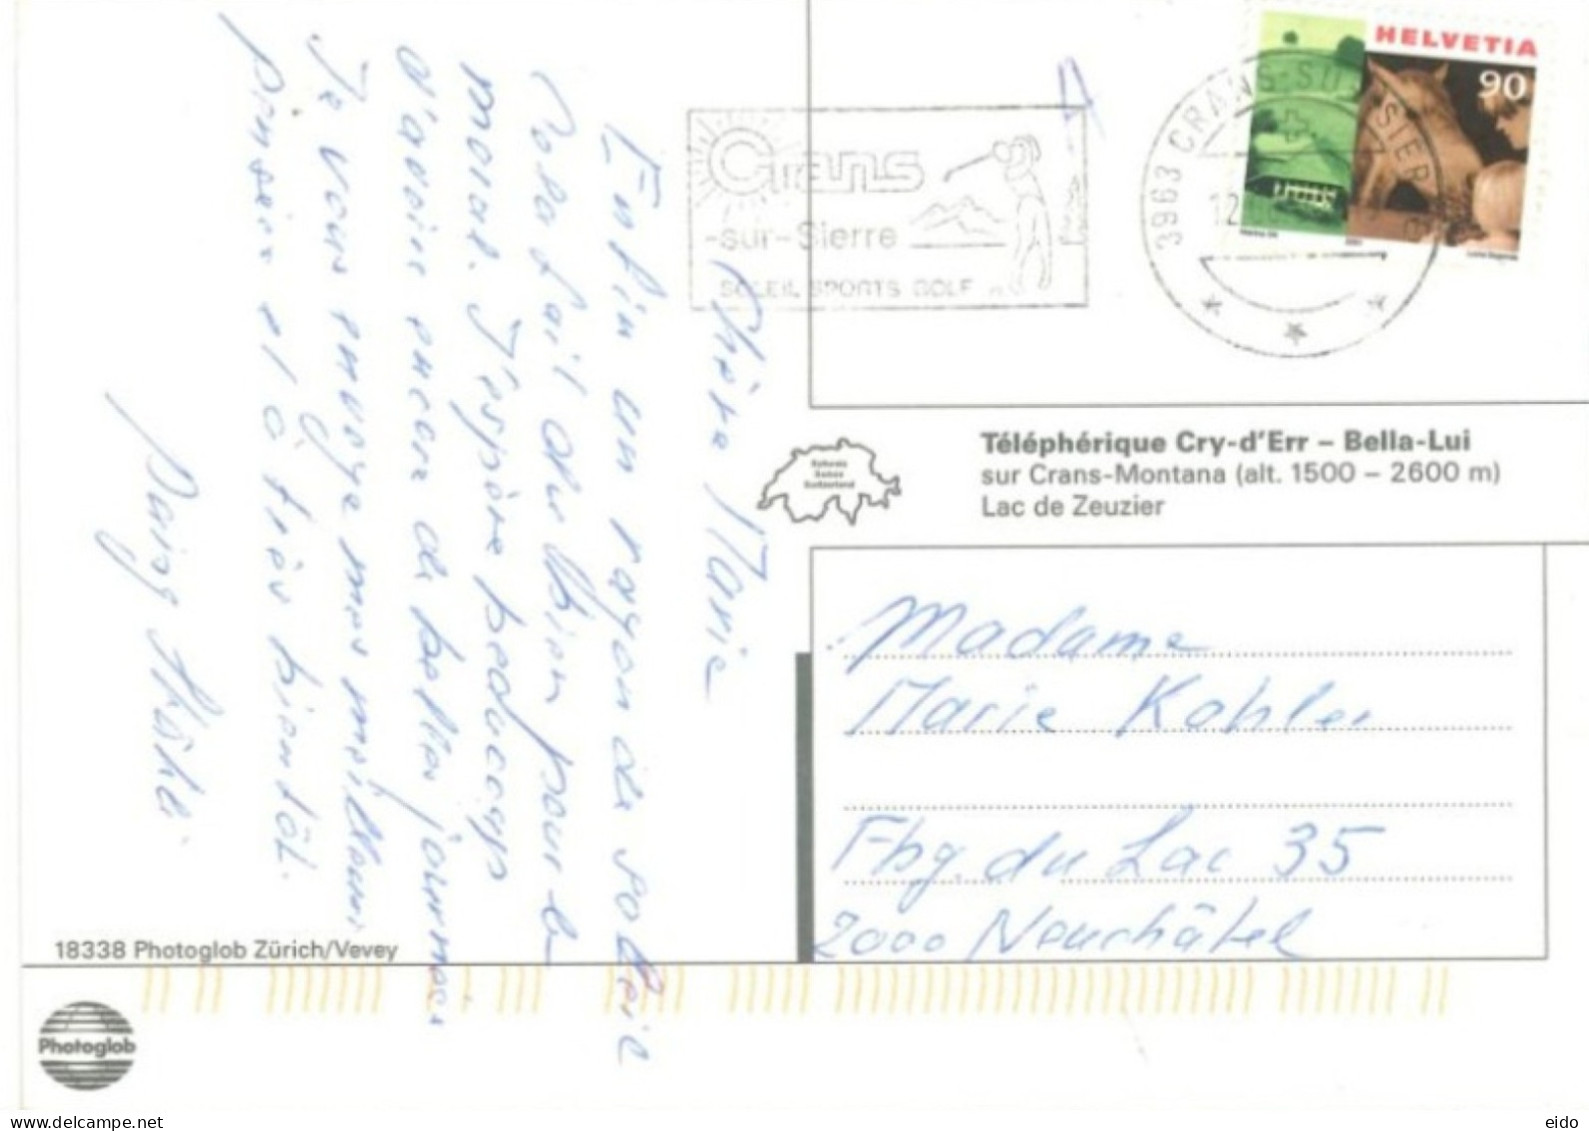 HELVETIA
90
3963 CRANS-SUR-SIERRE
12
Crans
-sur-Sierre
SOLEIL SPORTS GOLF
Téléphérique Cry-d'Err – Bella-Lui
sur Crans-Montana (alt. 1500 – 2600 m)
Lac de Zeuzier
Schweiz
Suisse
Switzerland
Chère Marie
Enfin un rayon de soleil
Cela fait du bien pour le
moral. J'espère beaucoup
d'avoir encore de belles journées
Je vous envoye mes meilleures
pensées et à très bientôt.
Madame
Marie Kohler
Fbg. du Lac 35
2000 Neuchâtel
18338 Photoglob Zürich/Vevey
Photoglob
www.delcampe.net
eido